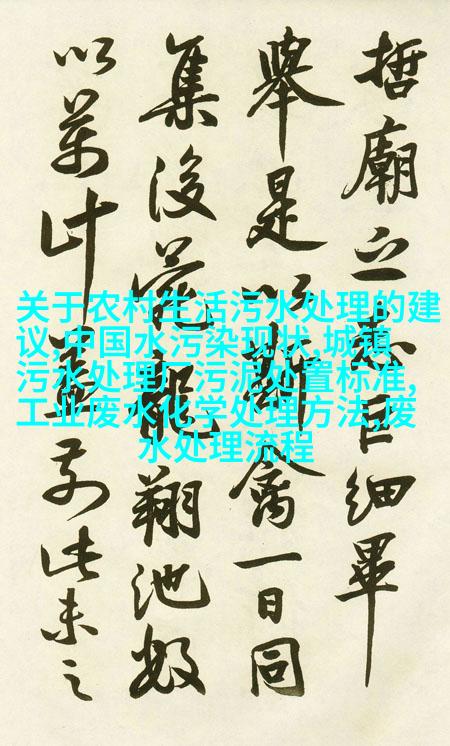 哲廟之志巨細畢
舉是以禽一日同
集後苑龍翔池
以萬計前此未之
关于农村生活污水处理的建
议,中国水污染现状,城镇
污水处理厂污泥处置标准,
工业废水化学处理方法,废
水处理流程